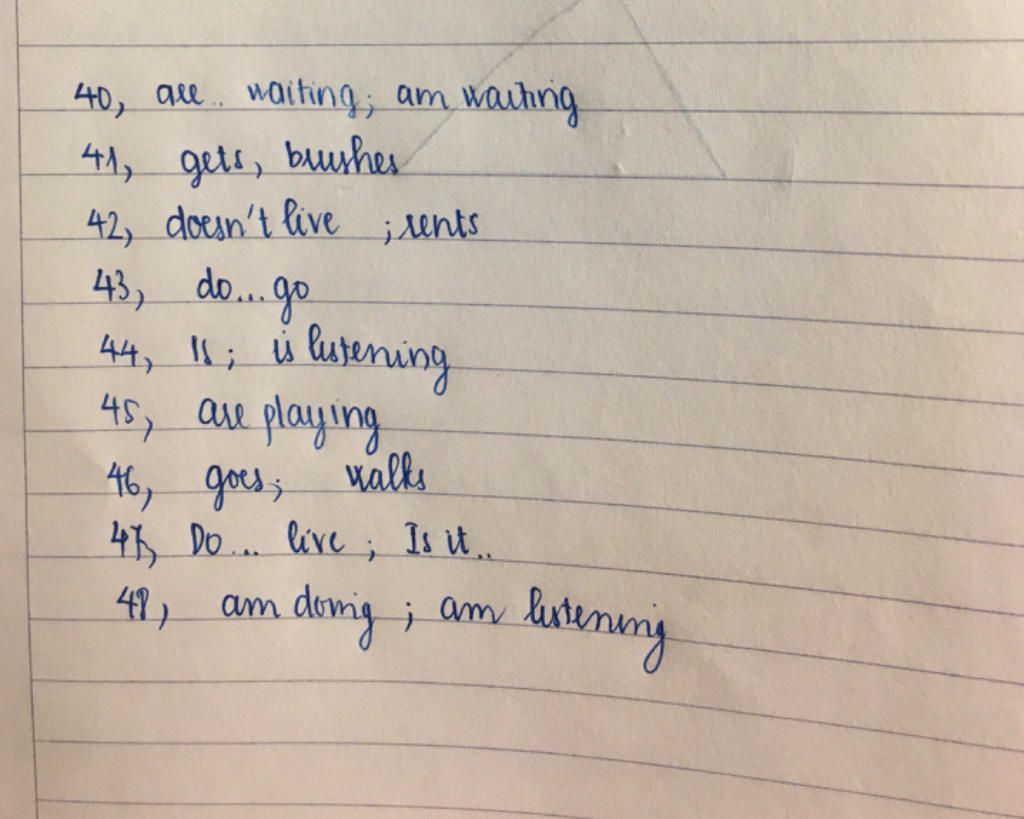 40, are.. waiting; am waiting
41, gets, brushes
42, doesn't live ; rents
43, do...go
44, Is; is listening
45, are playing
46, goes; walks
47, Do... live ; Is it..
48, am doing ; am listening